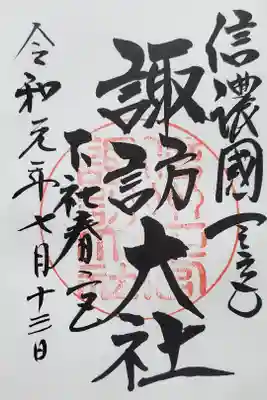 信濃國一之宮
諏訪大社
下社春宮
令和元年七月十三日